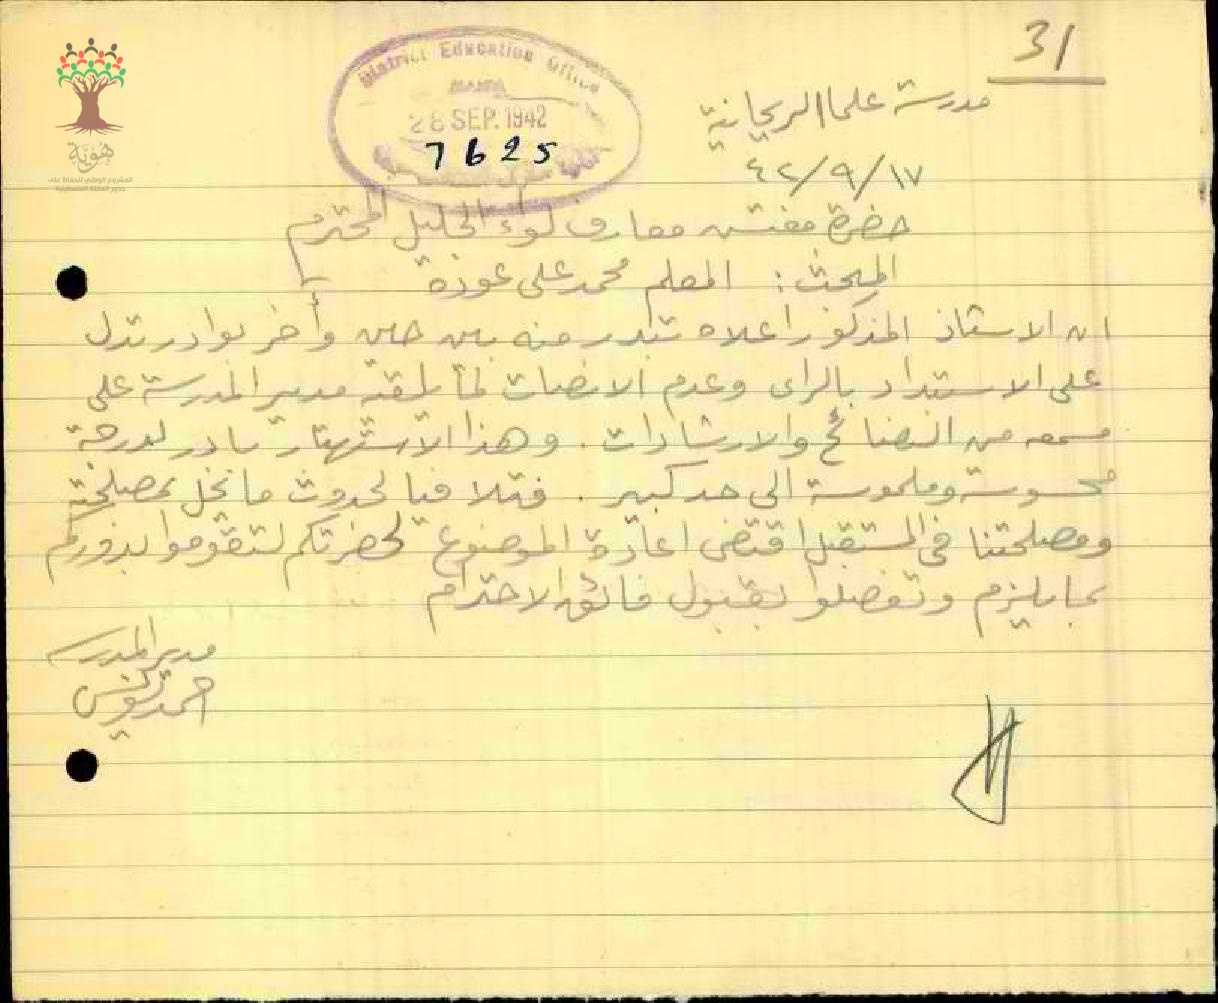 31
District Education Office
28 SEP. 1942
7625
مدرسة علما الريحانية
٤٢/٩/١٧
حضرة مفتش معارف لواء الجليل المحترم
المبحث : المعلم محمد علي عودة
ان الاستاذ المذكور اعلاه تبدر منه بين حين وأخر بوادر تدل
على الاستبداد بالراى وعدم الانصات لما يلقنه مدير المدرسة على
مسمعه من النصائح والارشادات . وهذا الاستهتار بادر لدرجة
محسوسة وملموسة الى حد كبير . فتلافيا لحدوث ما يخل بمصلحته
ومصلحتنا في المستقبل اقتضى اعادة الموضوع لحضرتكم لتقوموا بدوركم
بما يلزم وتفضلوا بقبول فائق الاحترام
مدير المدرسه
احمد
هوية
المشروع الوطني للحفاظ على
جذور العائلة الفلسطينية